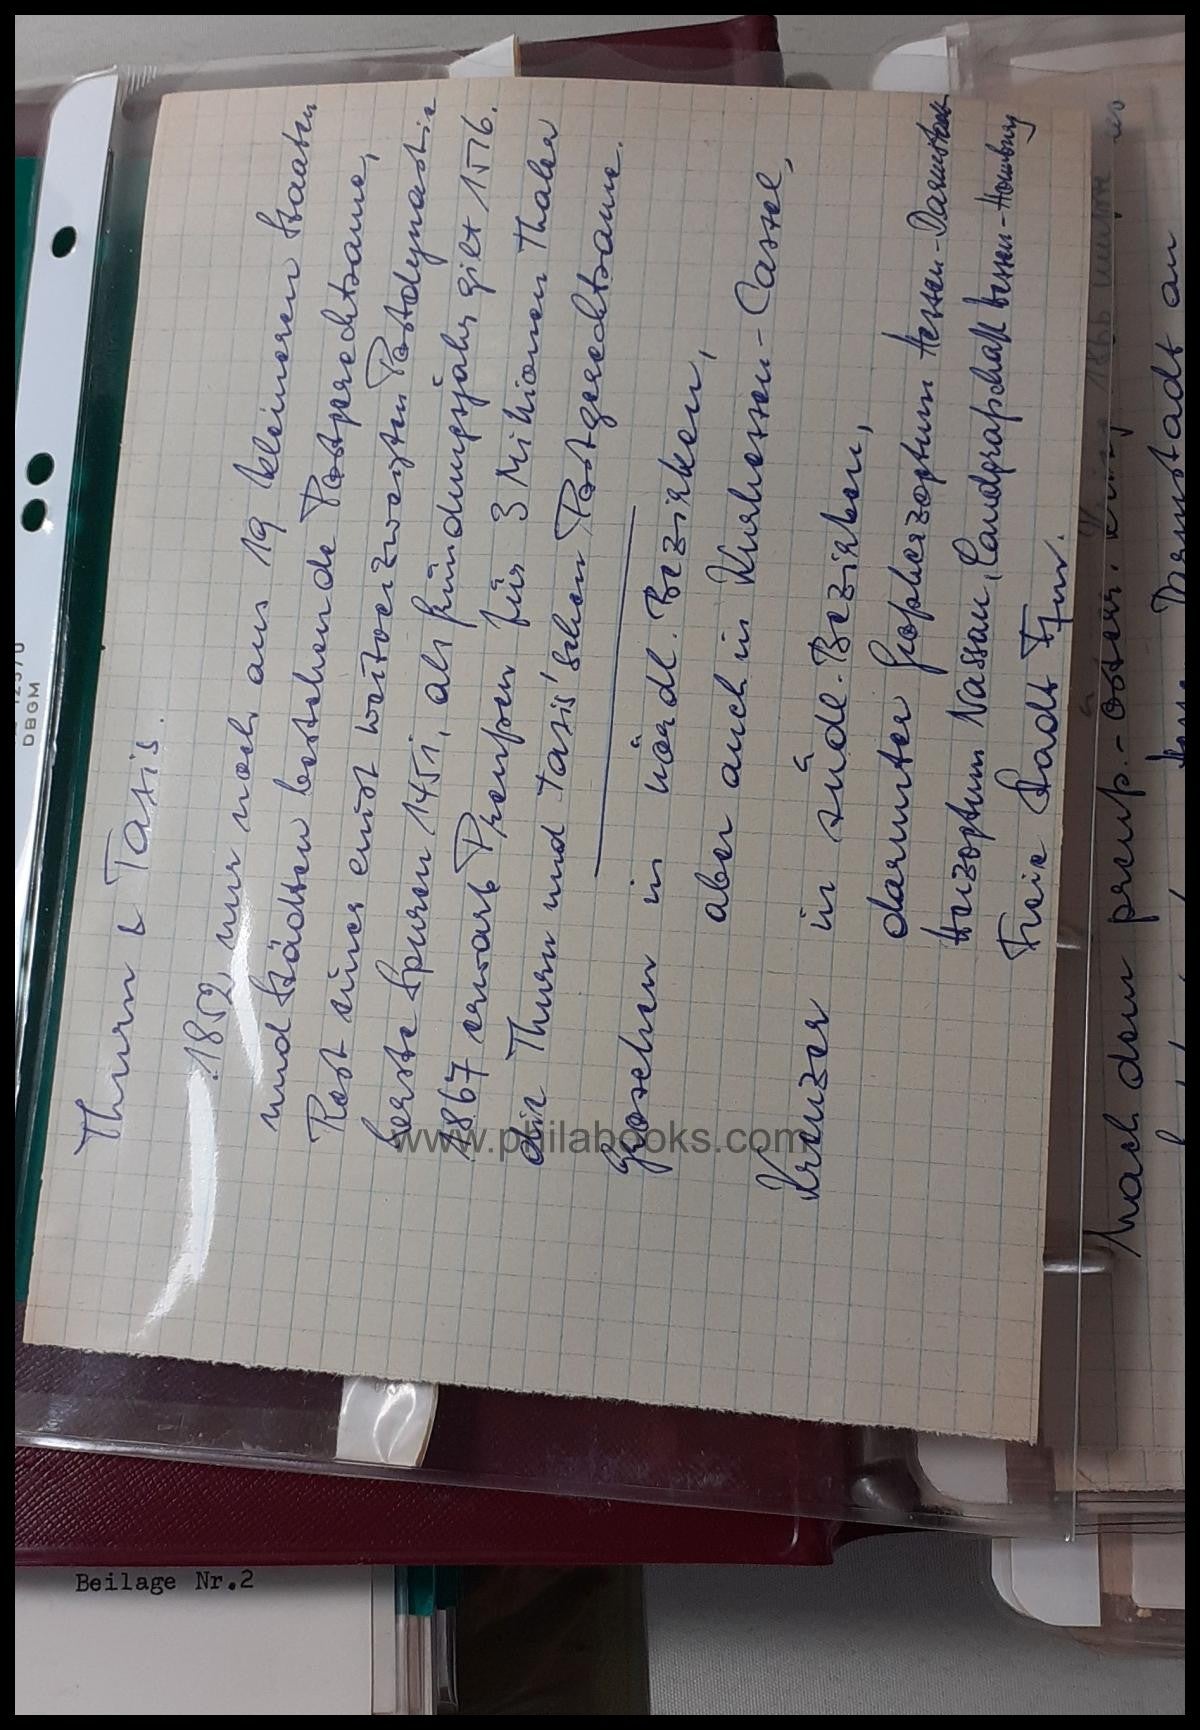 Thurn & Taxis.
1852 nur noch aus 19 kleineren Staaten
und Städten bestehende Postgerechtsame,
Rest einer einst weitverzweigten Postdynastie
erste Spuren 1451, als Gründungsjahr gilt 1516.
1867 erwarb Preußen für 3 Millionen Thaler
die Thurn und Taxis'schen Postgerechtsame.
Groschen in nördl. Bezirken,
aber auch in Kurhessen-Cassel,
Kreuzer in südl. Bezirken,
darunter Großherzogtum Hessen-Darmstadt
Herzogtum Nassau, Landgrafschaft Hessen-Homburg
Freie Stadt Ffur.
Nach dem preuß.-österr. Krieg 1866
Darmstadt an
DBGM
Beilage Nr.2
www.philabooks.com